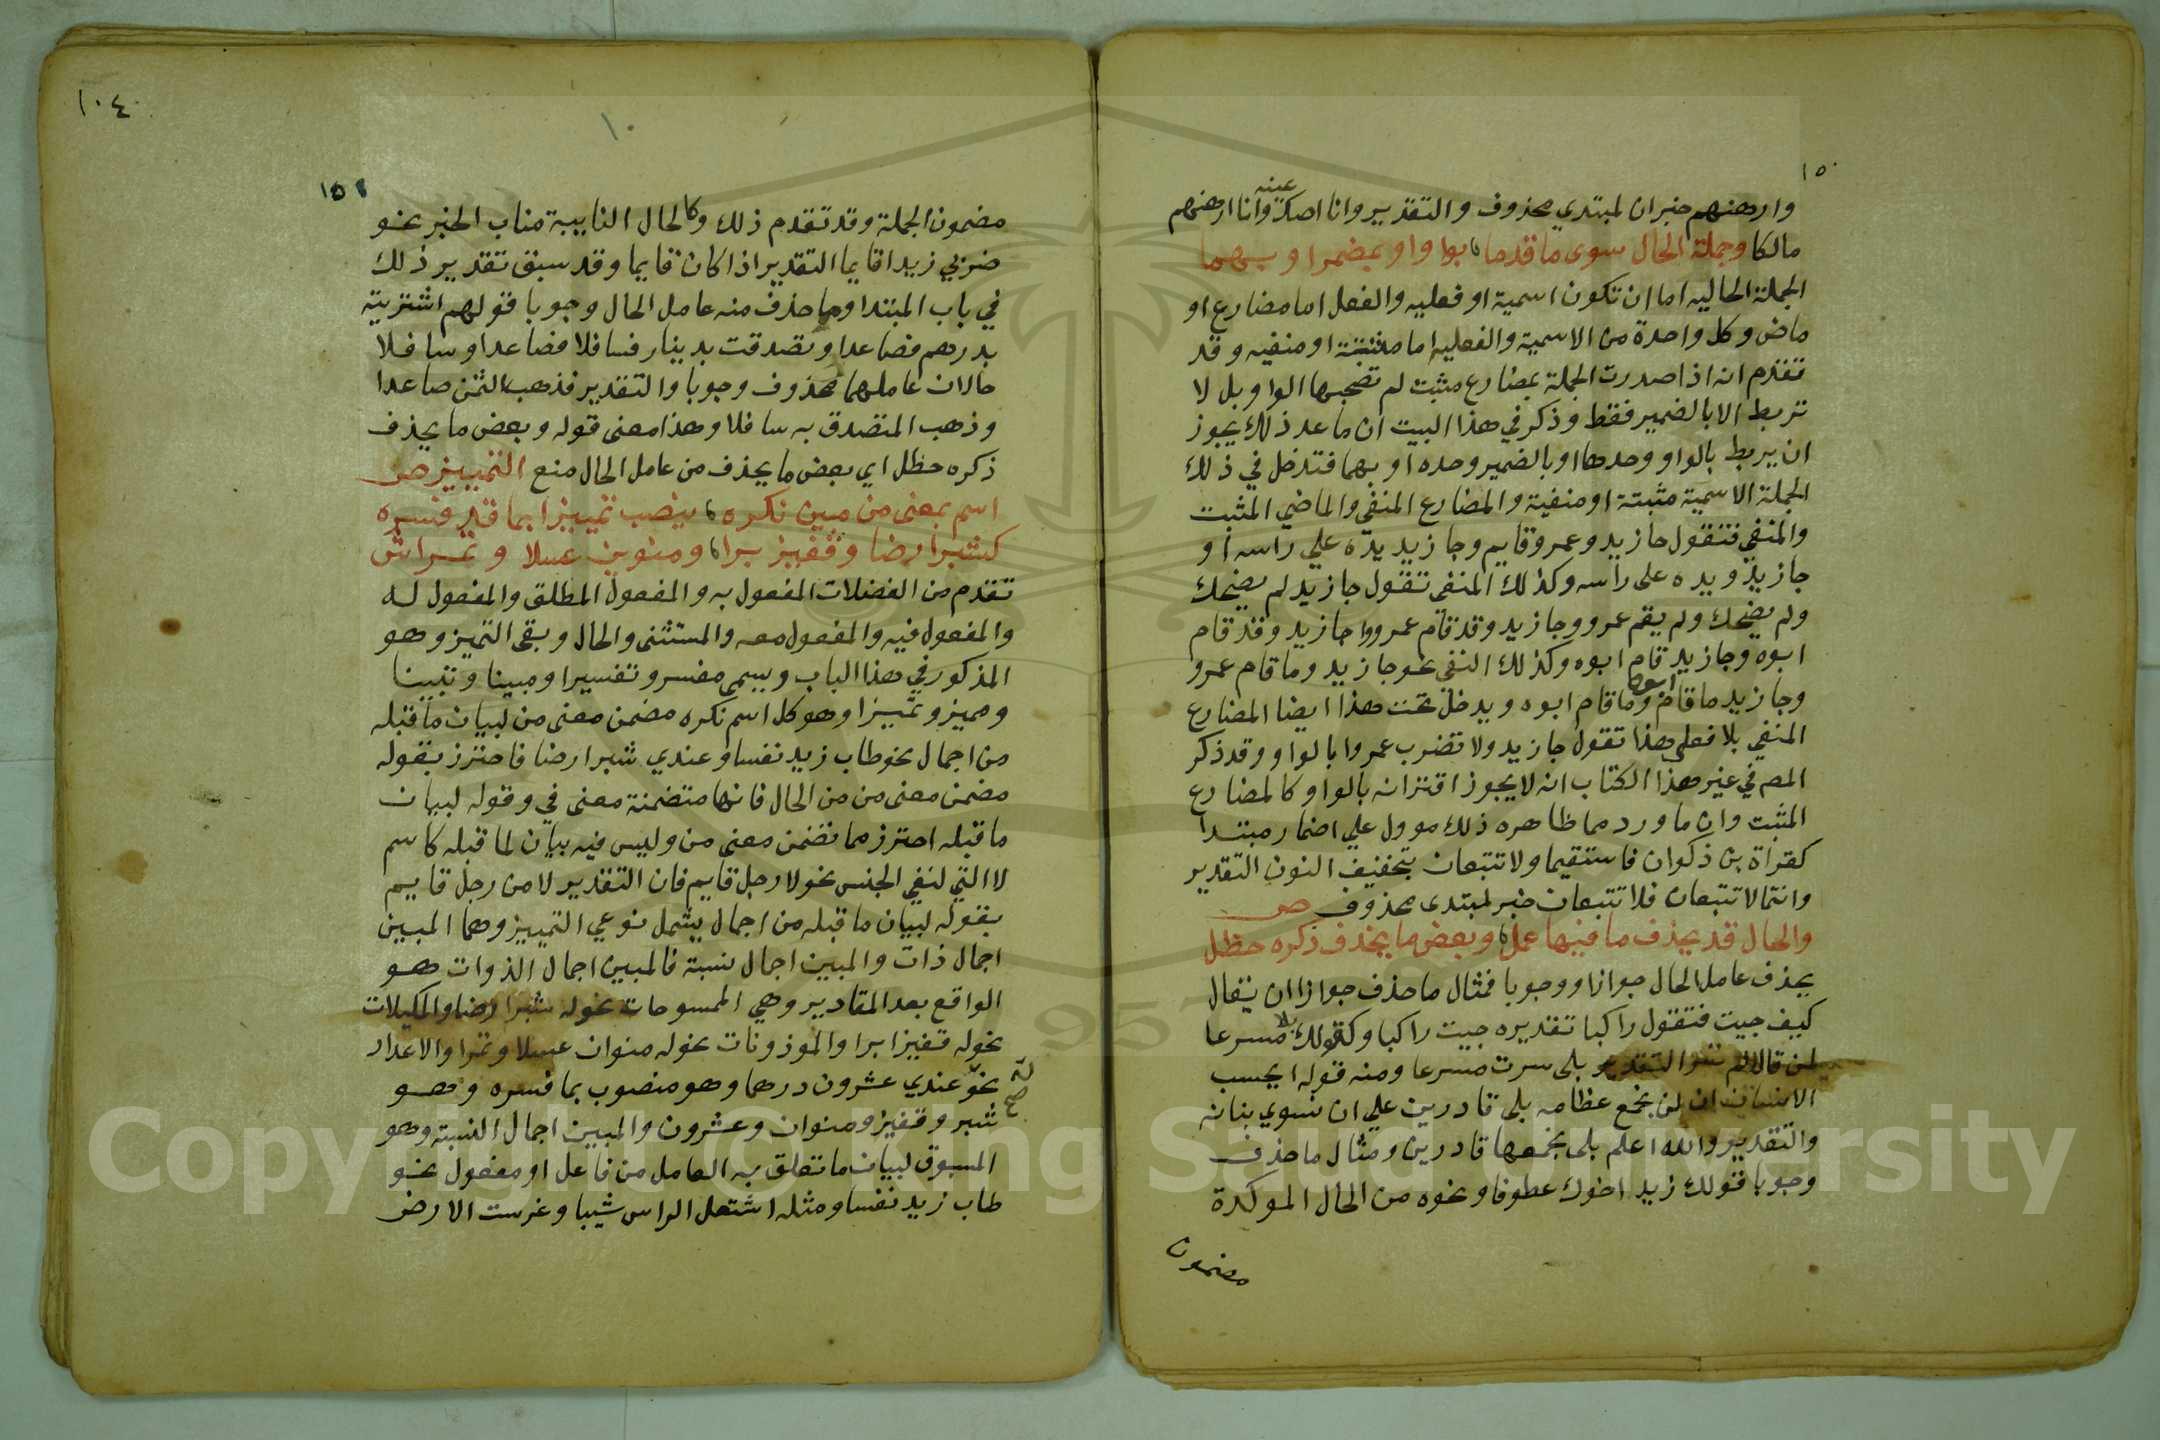 ١٥٠
وارهنهم خبران لمبتدي محذوف والتقدير وانا اصك عينه وانا ارهنهم
مالكا وجملة الحال سوى ما قدما بواو او بمضمر او بهما
الجملة الحاليه اما ان تكون اسمية او فعليه والفعل اما مضارع او
ماض وكل واحدة من الاسمية والفعليه اما مثبتة او منفيه وقد
تقدم انه اذا صدرت الجملة بمضارع مثبت لم تصحبها الواو بل لا
تربط الا بالضمير فقط وذكر في هذا البيت ان ما عد ذلك يجوز
ان يربط بالواو وحدها او بالضمير وحده او بهما فتدخل في ذلك
الجملة الاسمية مثبتة او منفية والمضارع المنفي والماضي المثبت
والمنفي فتقول جا زيد وعمرو قايم وجا زيد يده علي راسه او
جا زيد ويده على راسه وكذلك المنفى تقول جا زيد لم يضحك
ولم يضحك ولم يقم عمرو وجا زيد وقد قام عمرو وجا زيد وقد قام
ابوه وجا زيد قام ابوه وكذلك النفي نحو جا زيد وما قام عمرو
وجا زيد ما قام ابوه وما قام ابوه ويدخل تحت هذا ايضا المضارع
المنفي بلا فعلى هذا تقول جا زيد ولا تضرب عمروا بالواو وقد ذكر
المص في غير هذا الكتاب انه لا يجوز اقترانه بالواو كالمضارع
المثبت وان ما ورد مما ظاهره ذلك موول علي اضمار مبتدا
كقراة بن ذكوان فاستقيما ولا تتبعان بتخفيف النون التقدير
وانتما لا تتبعان فلا تتبعان خبر لمبتدى محذوف ص
والحال قد يحذف ما فيها عمل وبعض ما يحذف ذكره حظل
يحذف عامل الحال جوازا ووجوبا فمثال ما حذف جوازا ان يقال
كيف جيت فتقول راكبا تقديره جيت راكبا وكقولك بلا مسرعا
لمن قال لم تسر التقدير بلى سرت مسرعا ومنه قوله ايحسب
الانسان ان لن نجمع عظامه بلى قادرين علي ان نسوي بنانه
والتقدير والله اعلم بلى نجمعها قادرين ومثال ما حذف
وجوبا قولك زيد اخوك عطوفا ونحوه من الحال الموكدة
مضمون
١٠٤
١٠
١٥١
مضمون الجملة وقد تقدم ذلك وكالحال النايبة مناب الخبر نحو
ضربي زيدا قايما التقدير اذا كان قايما وقد سبق تقدير ذلك
في باب المبتدا ومما حذف منه عامل الحال وجوبا قولهم اشتريته
بدرهم فصاعدا وتصدقت بدينار فسافلا فصاعدا وسافلا
حالان عاملهما محذوف وجوبا والتقدير فذهب الثمن صاعدا
وذهب المتصدق به سافلا وهذا معنى قوله وبعض ما يحذف
ذكره حظل اي بعض ما يحذف من عامل الحال منع التمييز ص
اسم بمعنى من مبين نكره ينصب تمييزا بما قد فسره
كشبر ارضا وقفيز برا ومنوين عسلا وتمرا ش
تقدم من الفضلات المفعول به والمفعول المطلق والمفعول له
والمفعول فيه والمفعول معه والمستثنى والحال وبقى التميز وهو
المذكور في هذا الباب ويسمى مفسر وتفسيرا ومبينا وتبينا
ومميز وتمييزا وهو كل اسم نكره مضمن معنى من لبيان ما قبله
من اجمال نحو طاب زيد نفسا وعندي شبر ارضا فاحترز بقوله
مضمن معنى من من الحال فانها متضمنة معنى في وقوله لبيان
ما قبله احترز مما تضمن معنى من وليس فيه بيان لما قبله كاسم
لا التي لنفي الجنس نحو لا رجل قايم فان التقدير لا من رجل قايم
بقوله لبيان ما قبله من اجمال يشمل نوعي التمييز وهما المبين
اجمال ذات والمبين اجمال نسبة فالمبين اجمال الذوات هو
الواقع بعد المقادير وهي الممسوحات نحو له شبر ارضا والمكيلات
نحو له قفيزا برا والموزونات نحو له منوان عسلا وتمرا والاعداد
نحو عندي عشرون درهما وهو منصوب بما فسره وهو
شبر وقفيز ومنوان وعشرون والمبين اجمال النسبة وهو
المسوق لبيان ما تعلق به العامل من فاعل او مفعول نحو
طاب زيد نفسا ومثله اشتعل الراس شيبا وغرست الارض
له صح
Copyright © King Saud University